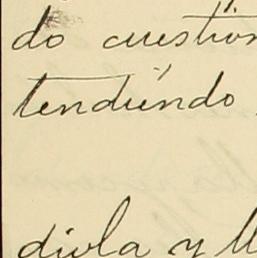 do cuestion
tendiéndo
divla y ll